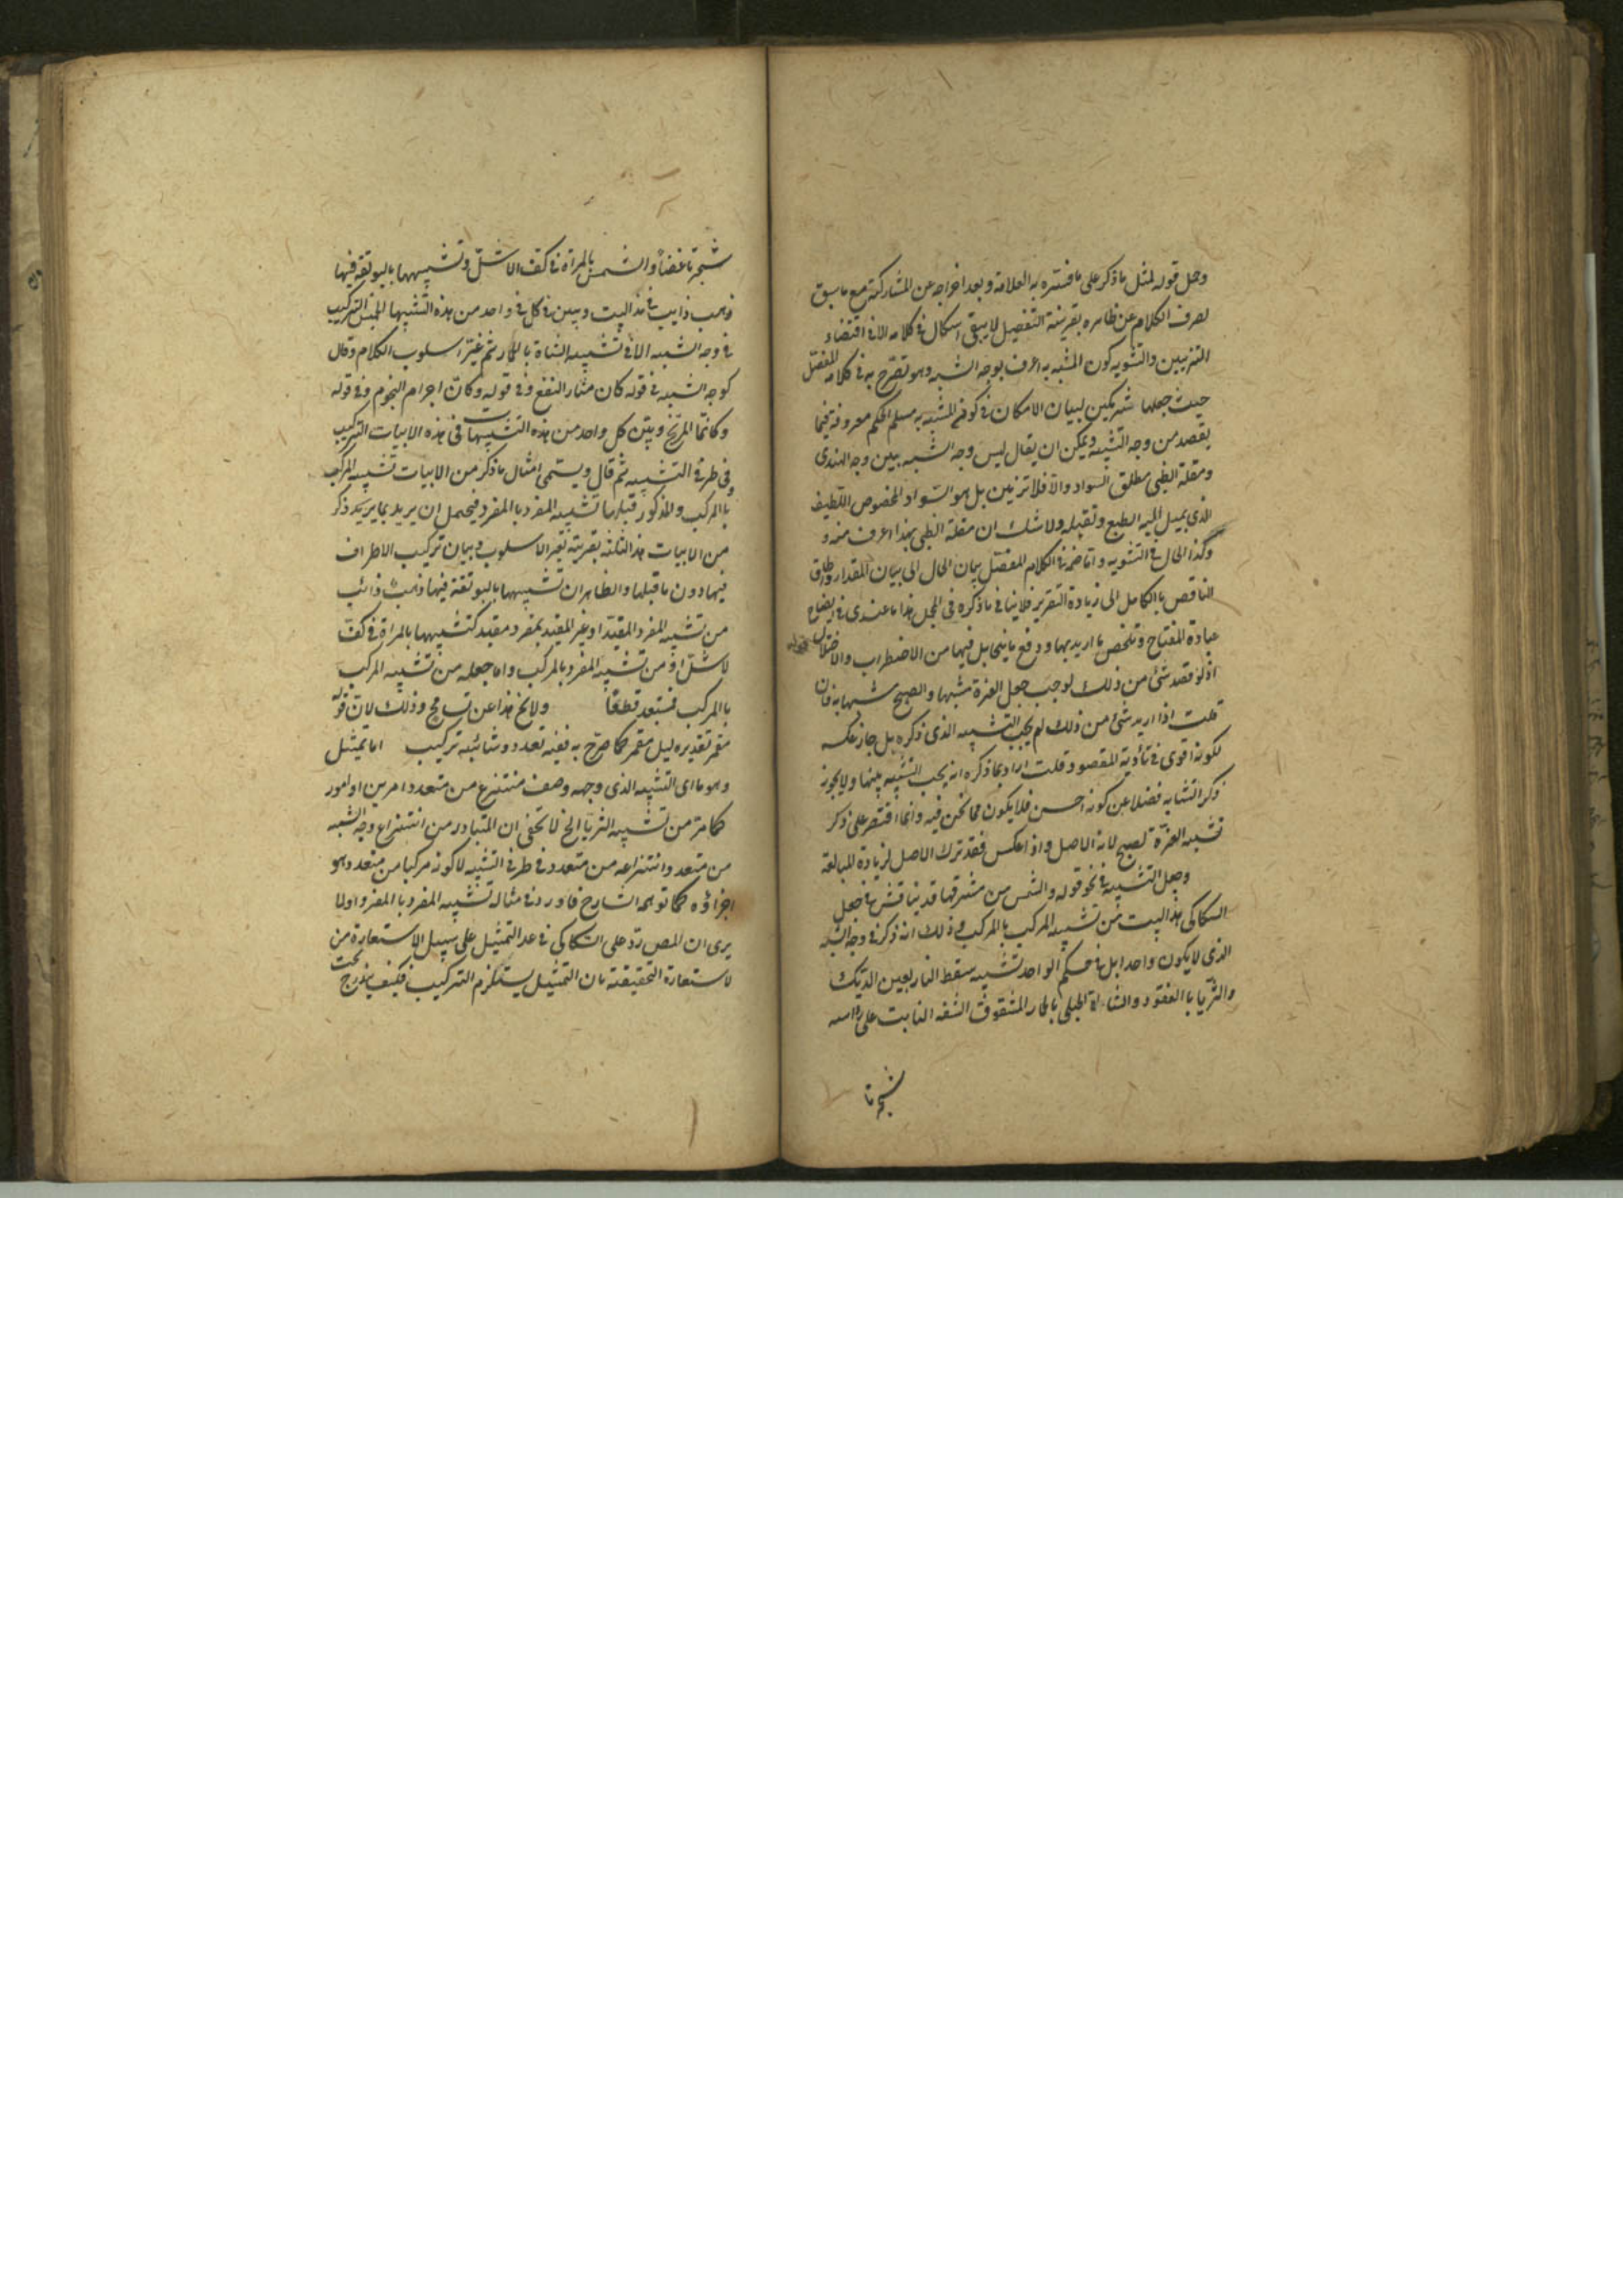 وحمل قوله لمثل ما ذكر على ما فسّره به العلامة وبعد اخراجه عن المشاركة مع ما سبق
لصرف الكلام عن ظاهره بقرينة التفصيل لا يبقى اشكال في كلامه الا في اقتضاء
التزيين والتشويه كون المشبه به اعرف بوجه الشبه وهو تصرّح به في كلامه المفصّل
حيث جعلها شريكين لبيان الامكان في كونه المشبه به مسلم الحكم معروفة فيما
يقصد من وجه التشبيه ويمكن ان يقال ليس وجه الشبه بين وجه الهندى
ومقلة الظبى مطلق السواد والا فلا تزيين بل هو السواد المخصوص اللطيف
الذى يميل اليه الطبع وتقبله ولا شك ان مقلة الظبى بهذا اعرف منه و
وكذا الحال في التشويه واما ضمّه في الكلام المفصّل بيان الحال الى بيان المقدار والحاق
الناقص بالكامل الى زيادة التقرير فلا ينافي ما ذكره في المجمل هذا ما عندى في ايضاح
عبارة المفتاح وتلخص ما اريد بها ودفع ما يتخايل فيها من الاضطراب والاختلال
اذ لو قصد شئ من ذلك لوجب جعل الغرة مشبها والصبح مشبها به فان
قلت اذا اريد شئ من ذلك لم يجب التشبيه الذى ذكره بل جاز عكسه
لكونه اقوى في تأدية المقصود قلت اراد بما ذكره انه يجب التشبيه بينهما ولا يجوز
ذكر التشابه فضلا عن كونه احسن فلا يكون مما نحن فيه وانما اقتصر على ذكر
تشبيه الغرة لصبح لانه الاصل واذا عكس فقد ترك الاصل لزيادة المبالغة
وجعل التشبيه في نحو قوله والشمس من مشرقها قد
السكاكى هذا البيت من تشبيه المركب بالمركب وذلك انه ذكر في وجه الشبه
الذى لا يكون واحدا بل في حكم الواحد تشبيه سقط النار بعين الديك
والثريا بالعنقود والشاة الجبلى بالحمار المشقوق الشفه النابت على راسه
شجرتا
شجرتا غضا والشمس بالمرآة في كف الاشلّ وتشبيهها بالبوتقة فيها
ذهب ذايب في هذا البيت وبين في كل واحد من هذه التشبيها التركيب
في وجه الشبه الا في تشبيه الشاة بالحمار ثم غيّر اسلوب الكلام وقال
كوجه الشبه في قوله كان مثار النقع وفي قوله وكانّ اجرام النجوم وفي قوله
وكانما المرّيخ وبيّن كل واحد من هذه التشبيهات في هذه الابيات التركيب
في طرفى التشبيه ثم قال ويسمى امثال ما ذكر من الابيات تشبيه المركب
بالمركب والمذكور قبلها تشبيه المفرد بالمفرد فيحتمل ان يريد بما يريد ذكر
من الابيات هذا الثلثة بقرينة تغير الاسلوب وبيان تركيب الاطراف
فيها دون ما قبلها والظاهر ان تشبيهها بالبوتقة فيها ذهب ذائب
من تشبيه المفرد المقيّد او غير المقيد بمفرد مقيد كتشبيهها بالمرآة في كف
لاشلّ او من تشبيه المفرد بالمركب واما جعله من تشبيه المركب
بالمركب فستبعد قطعًا ولا يخ هذا عن تسامح وذلك لان قوله
مقمر تقديره ليل مقمر كما صرّح به ففيه تعدد وشائبة تركيب اما تمثيل
وهو ما اى التشبيه الذى وجهه وصف منتزع من متعدد امرين او امور
كما مرّ من تشبيه الثريا الخ لا يخفى ان المتبادر من انتزاع وجه الشبه
من متعدد وانتزاعه من متعدد في طرفى التشبيه لا كونه مركبا من متعدد وهو
اجزاؤه كما توهمه الشارح فاورد في مثاله تشبيه المفرد بالمفرد اولا
يرى ان المص ردّ على السكاكى في عد التمثيل على سبيل الاستعارة من
لاستعارة التحقيقية بان التمثيل يستلزم التركيب فكيف يندرج تحت